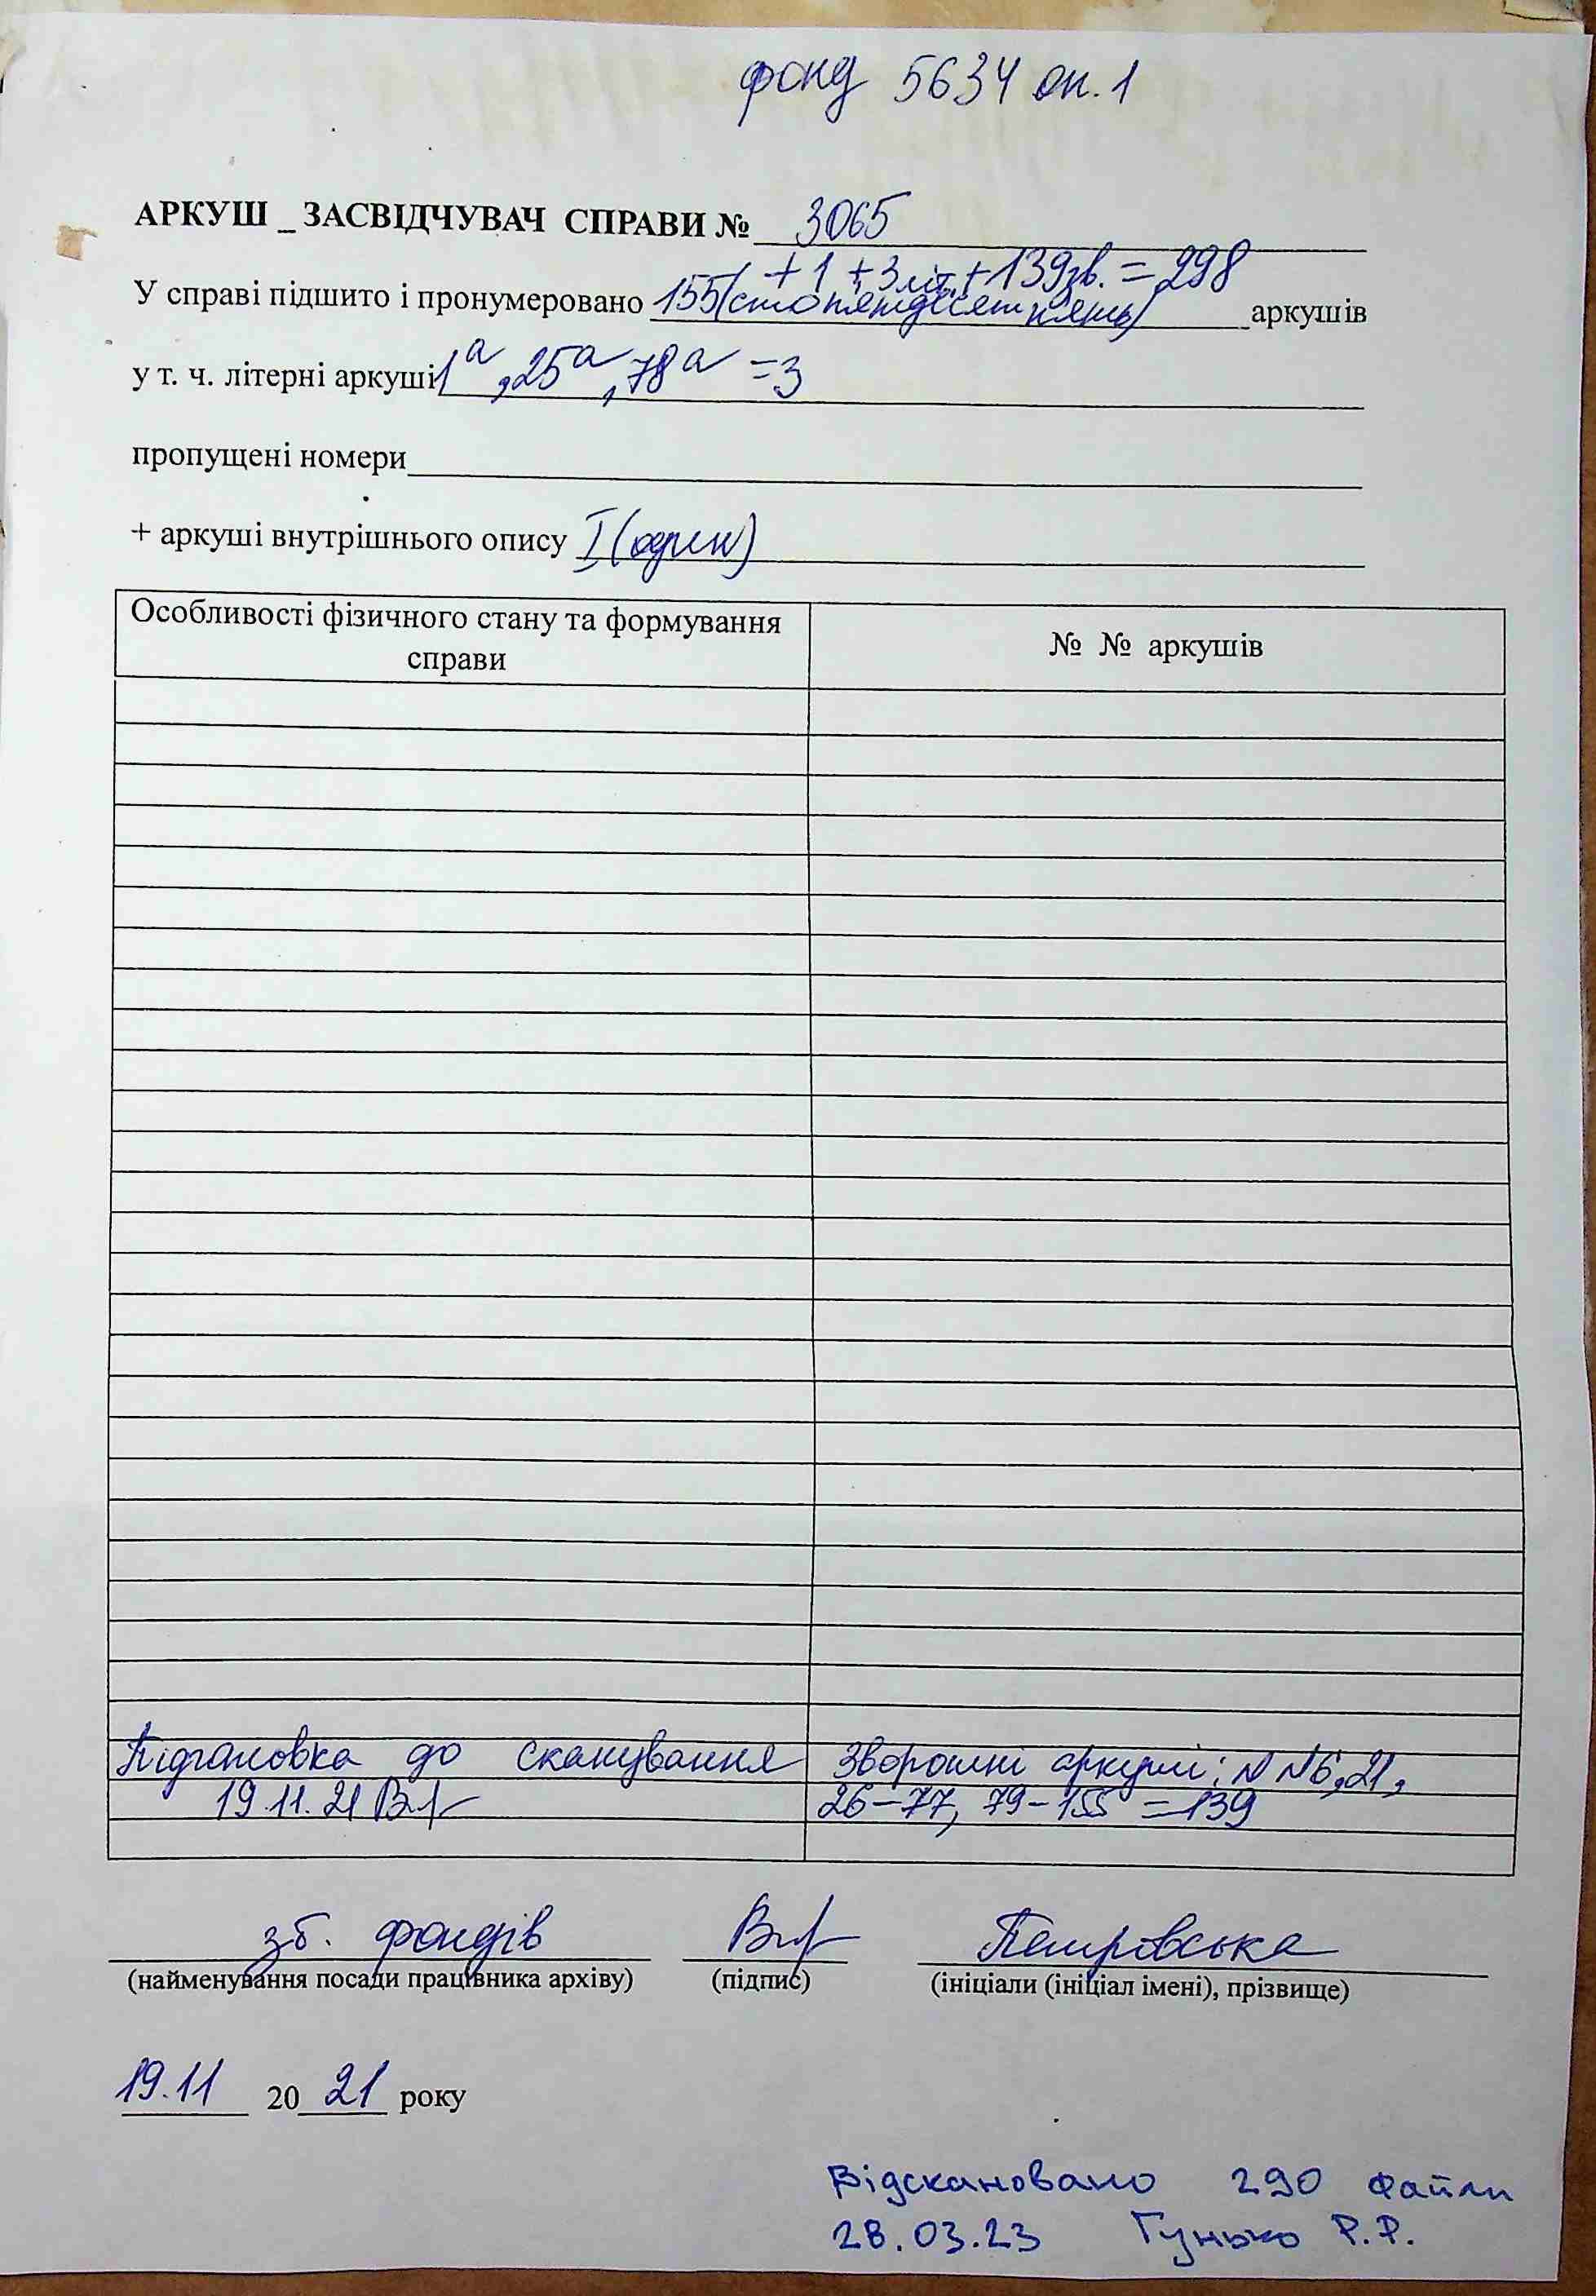 фонд 5634 оп. 1
АРКУШ _ ЗАСВІДЧУВАЧ СПРАВИ № 3065
+ 1 + 3 літ. + 139 зв. = 298
У справі підшито і пронумеровано 155 (сто п'ятдесят п'ять) аркушів
у т. ч. літерні аркуші 1а, 25а, 78а = 3
пропущені номери
+ аркуші внутрішнього опису I (один)
Особливості фізичного стану та формування
справи
№ № аркушів
Підготовка до сканування
19.11.21
Зворотні аркуші: N N 6, 21,
26-77, 79-155 = 139
зб. фондів Петровська
(найменування посади працівника архіву) (підпис) (ініціали (ініціал імені), прізвище)
19.11 20 21 року
Відскановано 290 файли
28.03.23 Гунько Р.Р.